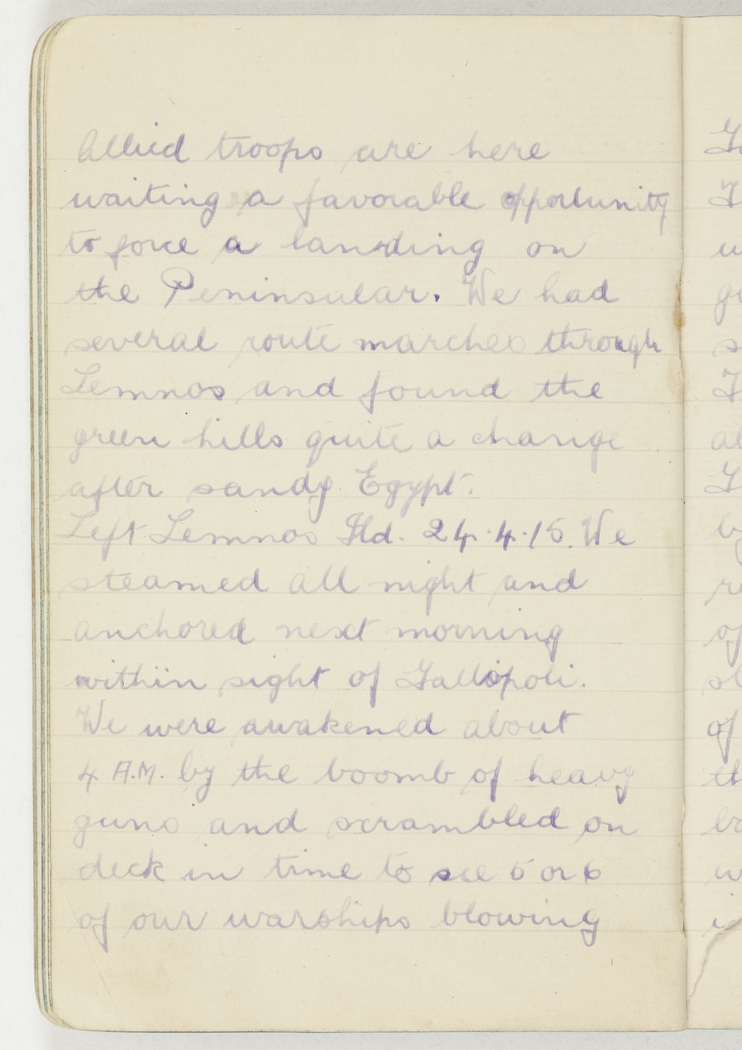 Allied troops are here
waiting a favorable opportunity
to force a landing on
the Peninsular. We had
several route marches through
Lemnos and found the
green hills quite a change
after sandy Egypt.
Left Lemnos Ild. 24.4.15. We
steamed all night and
anchored next morning
within sight of Gallopoli.
We were awakened about
4 A.M. by the boomb of heavy
guns and scrambled on
deck in time to see 5 or 6
of our warships blowing